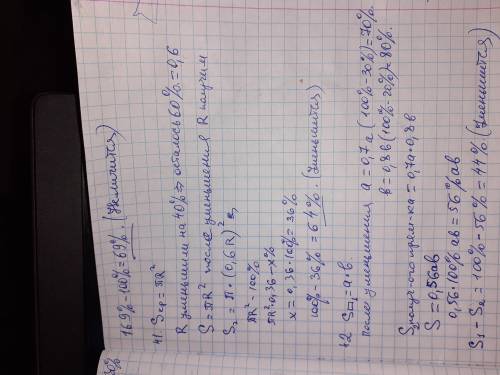 50%
169% - 100% = 69%. (Увеличится)
41 Sкр = πR²
R уменьшим на 40% ⇒ осталось 60% = 0,6
S = πR² после уменьшения R получим
S₂ = π · (0,6R)²
πR² - 100%
πR² 0,36 - x%
x = 0,36 · 100% = 36%
100% - 36% = 64%. (уменьшится)
42 S▭ = a · b.
После уменьшения a = 0,7a (100% - 30%) = 70%.
b = 0,8b (100% - 20%) = 80%.
S₂ получ-ого прям-ка = 0,7a · 0,8b
S = 0,56ab
0,56 · 100% ab = 56% ab
S₁ - S₂ = 100% - 56% = 44% (уменьшится)